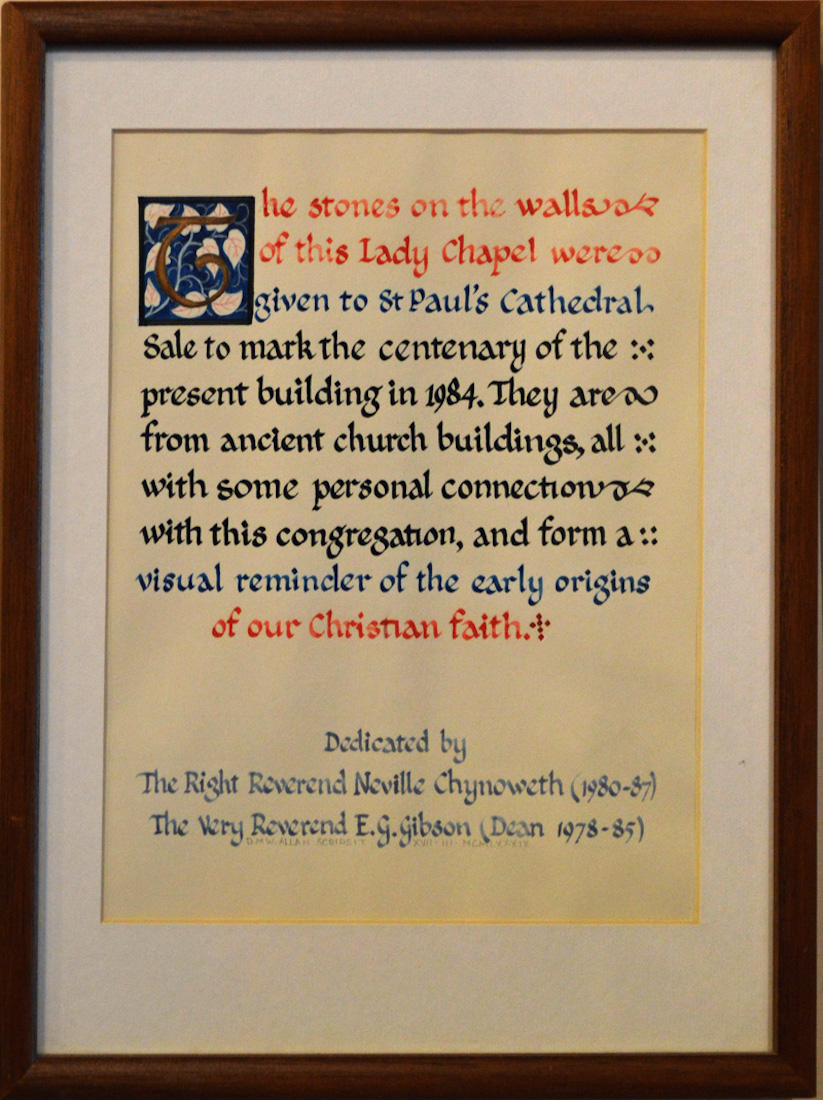 The stones on the walls
of this Lady Chapel were
given to St Paul's Cathedral
Sale to mark the centenary of the
present building in 1984. They are
from ancient church buildings, all
with some personal connection
with this congregation, and form a
visual reminder of the early origins
of our Christian faith.
Dedicated by
The Right Reverend Neville Chynoweth (1980-87)
The Very Reverend E.G.Gibson (Dean 1978-85)
D.M.W. ALLAN SCRIPSIT XVII · III · MCMLXXXIX